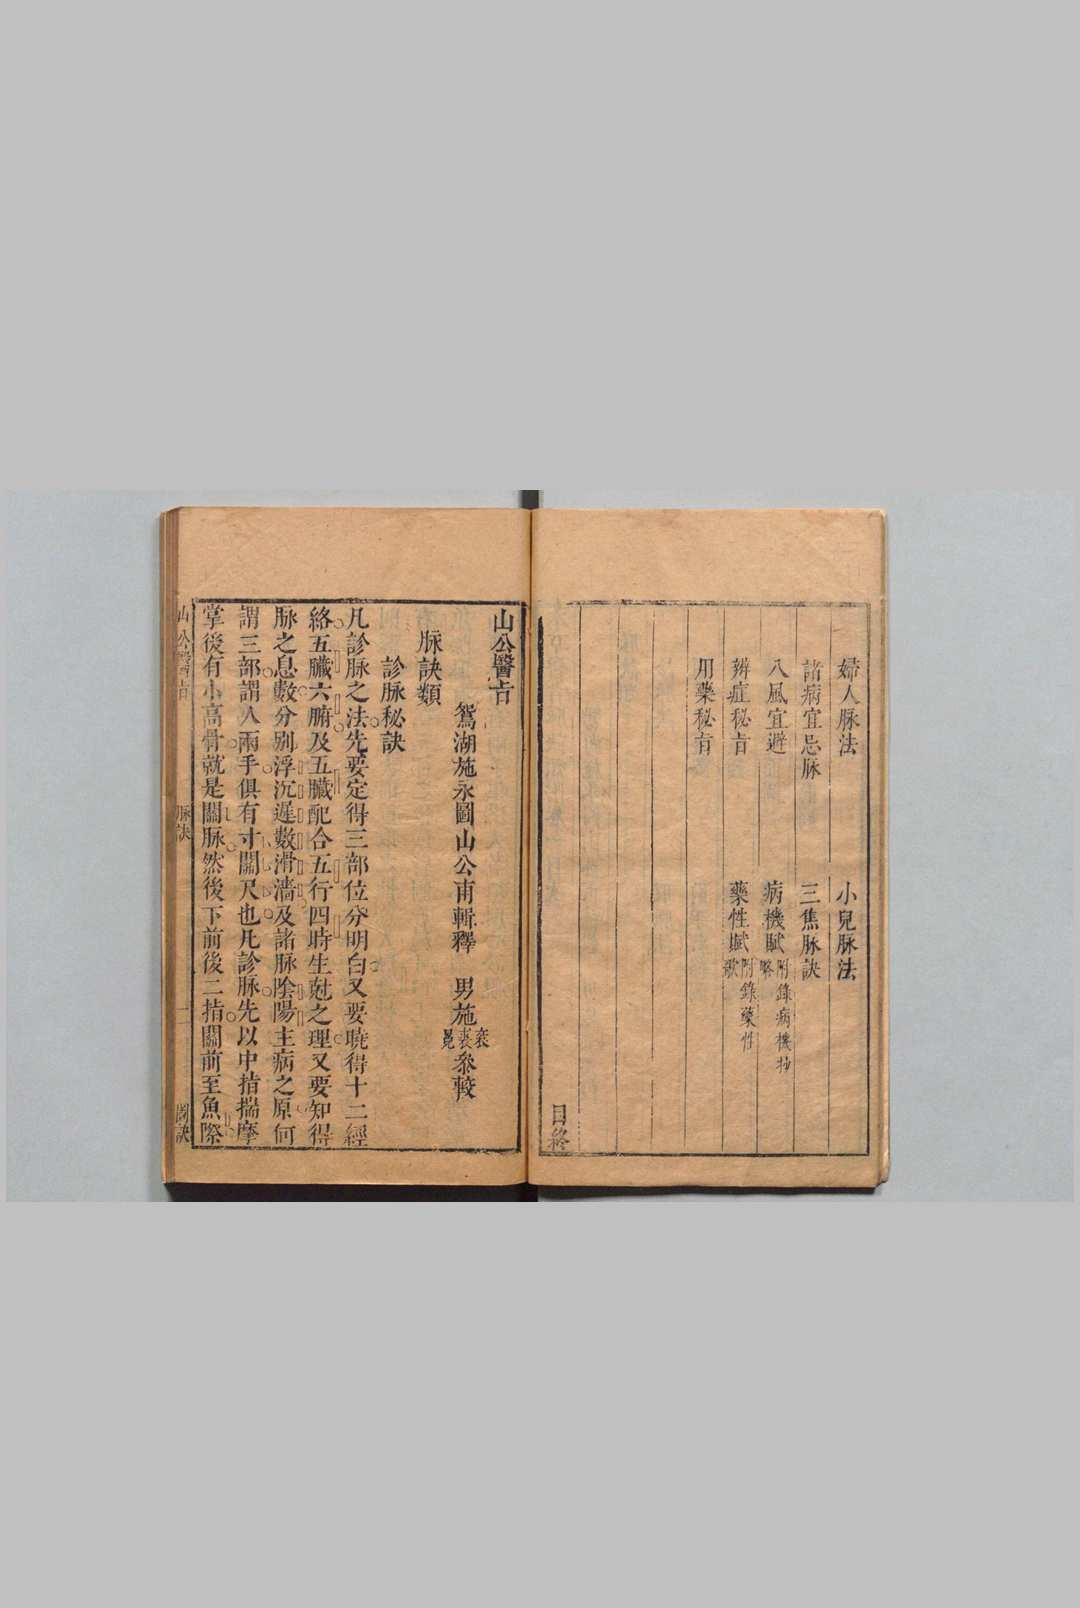 婦人脉法
小兒脉法
諸病宜忌脉
三焦脉訣
八風宜避
病機賦 附錄病機抄略
辨症秘旨
藥性賦 附錄藥性歌
用藥秘旨
目終
山公醫旨
鴛湖施永圖山公甫輯釋 男施
衮裵 叅較
脉訣類
診脉秘訣
凡診脉之法先要定得三部位分明白又要曉得十二經
絡五臟六腑及五臟配合五行四時生尅之理又要知得
脉之息數分别浮沉遲數滑濇及諸脉陰陽主病之原何
謂三部謂人兩手俱有寸關尺也凡診脉先以中指揣摩
掌後有小高骨就是關脉然後下前後二指關前至魚際
山公醫旨 脉訣 一